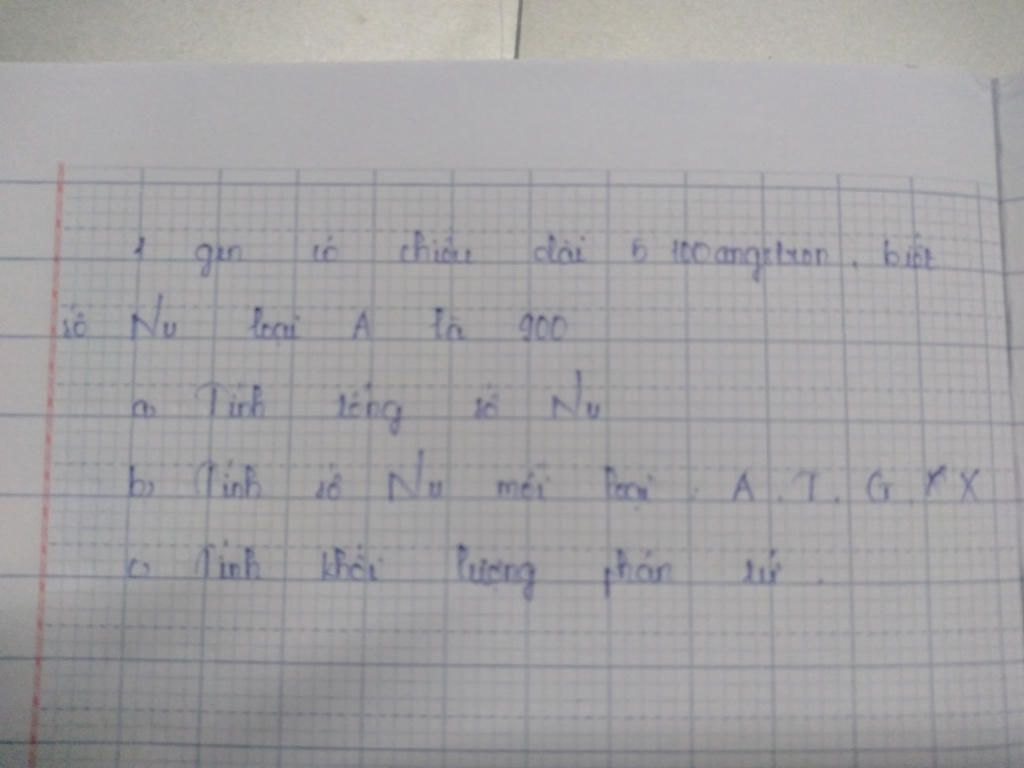 1 gen có chiều dài 5100 angstron. biết
số Nu loại A là 900
a) Tính tổng số Nu
b) Tính số Nu mỗi loại. A. T. G. X X
c) Tính khối lượng phân tử.